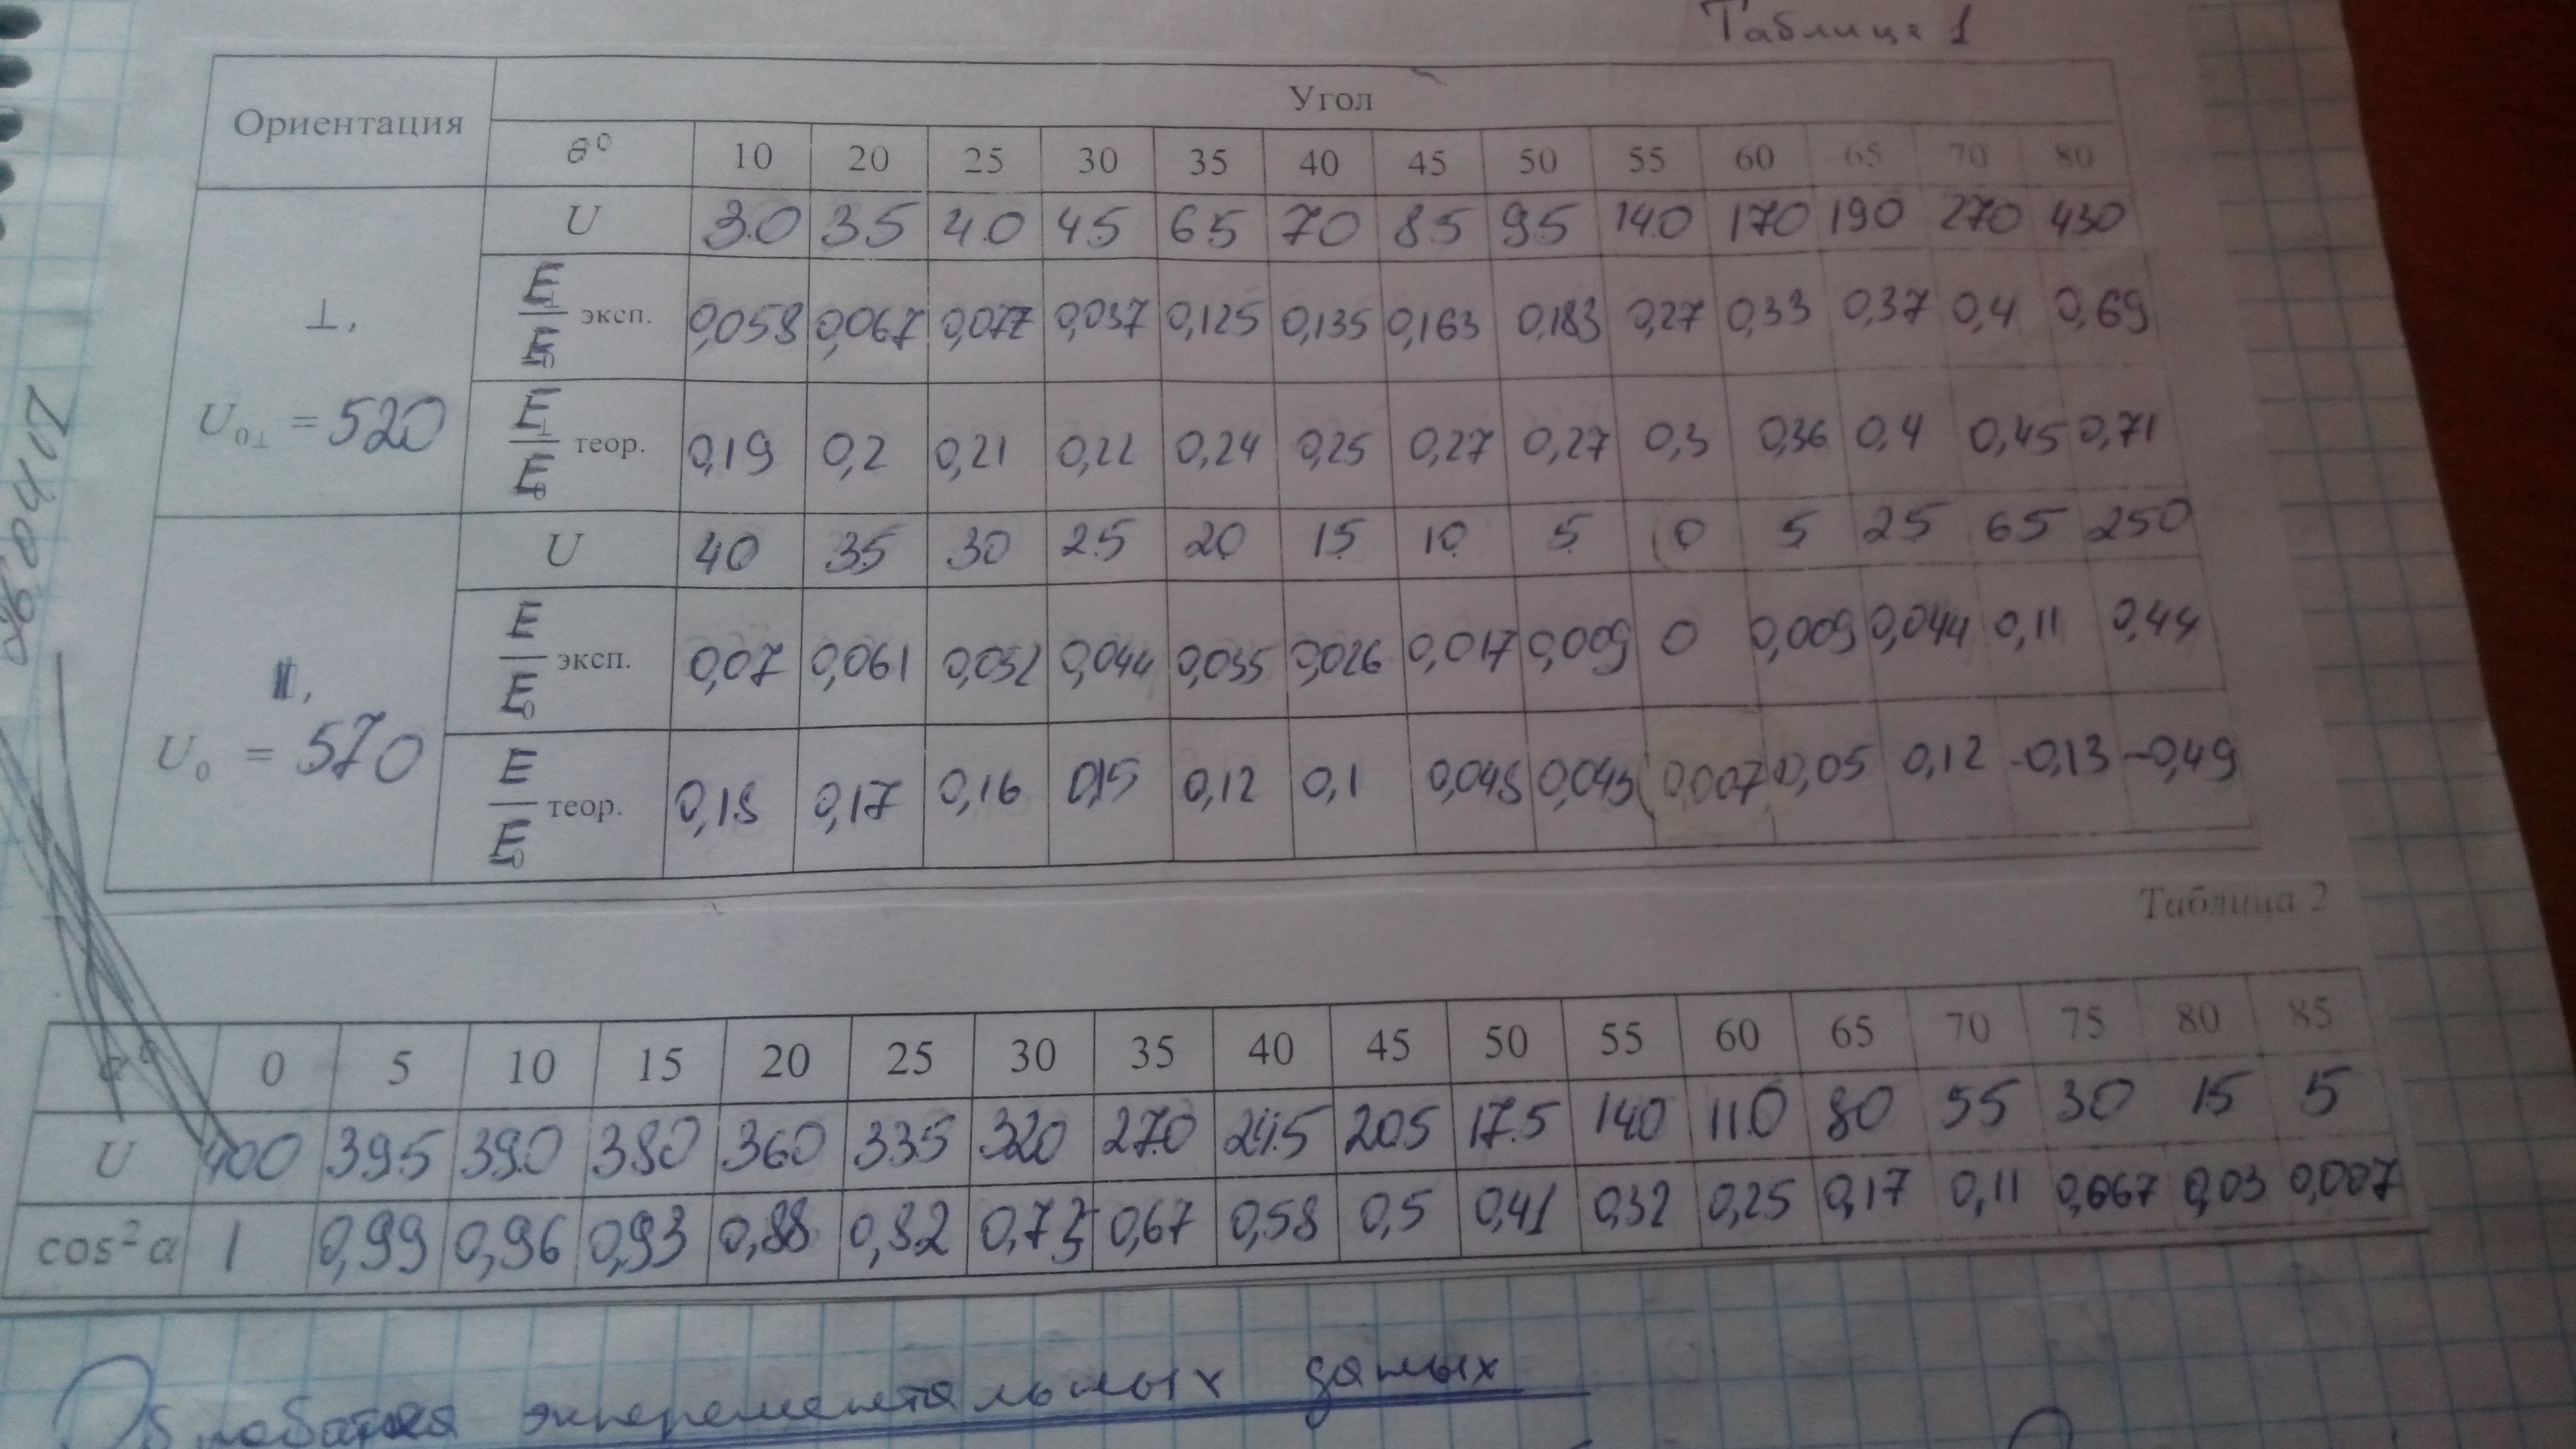 Таблица 1
Ориентация Угол
θ⁰ 10 20 25 30 35 40 45 50 55 60 65 70 80
⊥, U₀⊥ = 520
U 30 35 40 45 65 70 85 95 140 170 190 270 430
E⊥/E₀ эксп. 0,058 0,067 0,077 0,037 0,125 0,135 0,163 0,183 0,27 0,33 0,37 0,4 0,69
E⊥/E₀ теор. 0,19 0,2 0,21 0,22 0,24 0,25 0,27 0,27 0,3 0,36 0,4 0,45 0,71
II, U₀ = 570
U 40 35 30 25 20 15 10 5 0 5 25 65 250
E/E₀ эксп. 0,07 0,061 0,052 0,044 0,035 0,026 0,017 0,009 0 0,009 0,044 0,11 0,44
E/E₀ теор. 0,18 0,17 0,16 0,15 0,12 0,1 0,048 0,043 0,007 0,05 0,12 -0,13 -0,49
Таблица 2
α⁰ 0 5 10 15 20 25 30 35 40 45 50 55 60 65 70 75 80 85
U 400 395 390 380 360 335 320 270 245 205 175 140 110 80 55 30 15 5
cos²α 1 0,99 0,96 0,93 0,88 0,82 0,75 0,67 0,58 0,5 0,41 0,32 0,25 0,17 0,11 0,067 0,03 0,007
06.04.17